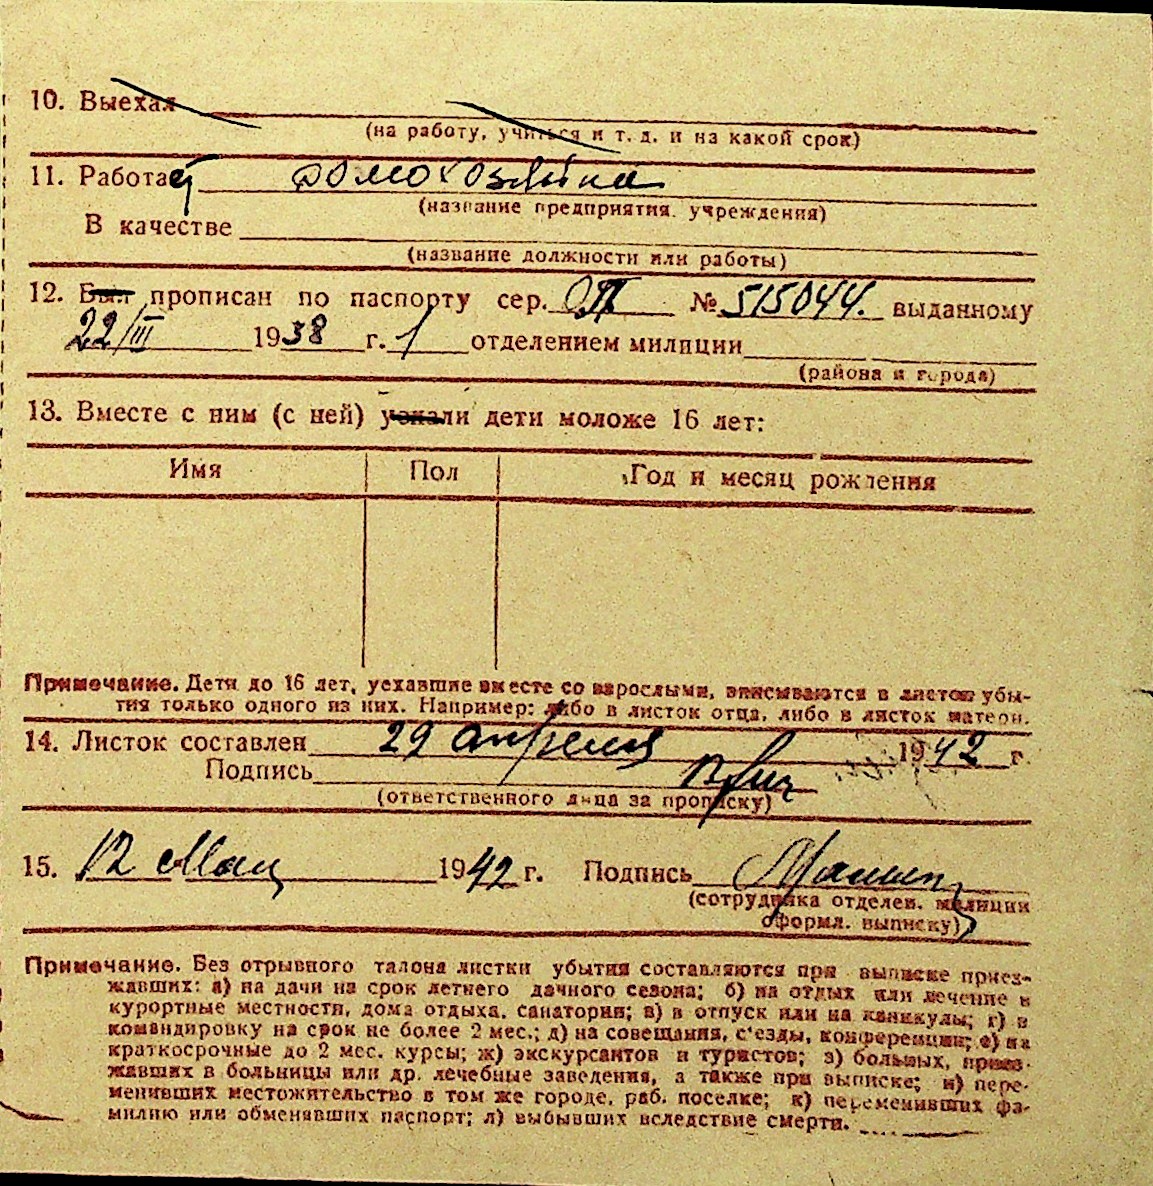 10. Выехал
(на работу, учиться и т. д. и на какой срок)
11. Работает домохозяйка
(название предприятия, учреждения)
В качестве
(название должности или работы)
12. Был прописан по паспорту сер. ОП № 515044. выданному
22/III 1938 г. 1 отделением милиции
(района и города)
13. Вместе с ним (с ней) уехали дети моложе 16 лет:
Имя Пол Год и месяц рождения
Примечание. Дети до 16 лет, уехавшие вместе со взрослыми, вписываются в листок убы-
тия только одного из них. Например: либо в листок отца, либо в листок матери.
14. Листок составлен 29 апреля 1942 г.
Подпись
(ответственного лица за прописку)
15. 12 Мая 1942 г. Подпись
(сотрудника отделен. милиции
оформл. выписку)
Примечание. Без отрывного талона листки убытия составляются при выписке приез-
жавших: а) на дачи на срок летнего дачного сезона; б) на отдых или лечение в
курортные местности, дома отдыха, санатории; в) в отпуск или на каникулы; г) в
командировку на срок не более 2 мес.; д) на совещания, с'езды, конференции; е) на
краткосрочные до 2 мес. курсы; ж) экскурсантов и туристов; з) больных, приез-
жавших в больницы или др. лечебные заведения, а также при выписке; и) пере-
менивших местожительство в том же городе, раб. поселке; к) переменивших фа-
милию или обменявших паспорт; л) выбывших вследствие смерти.